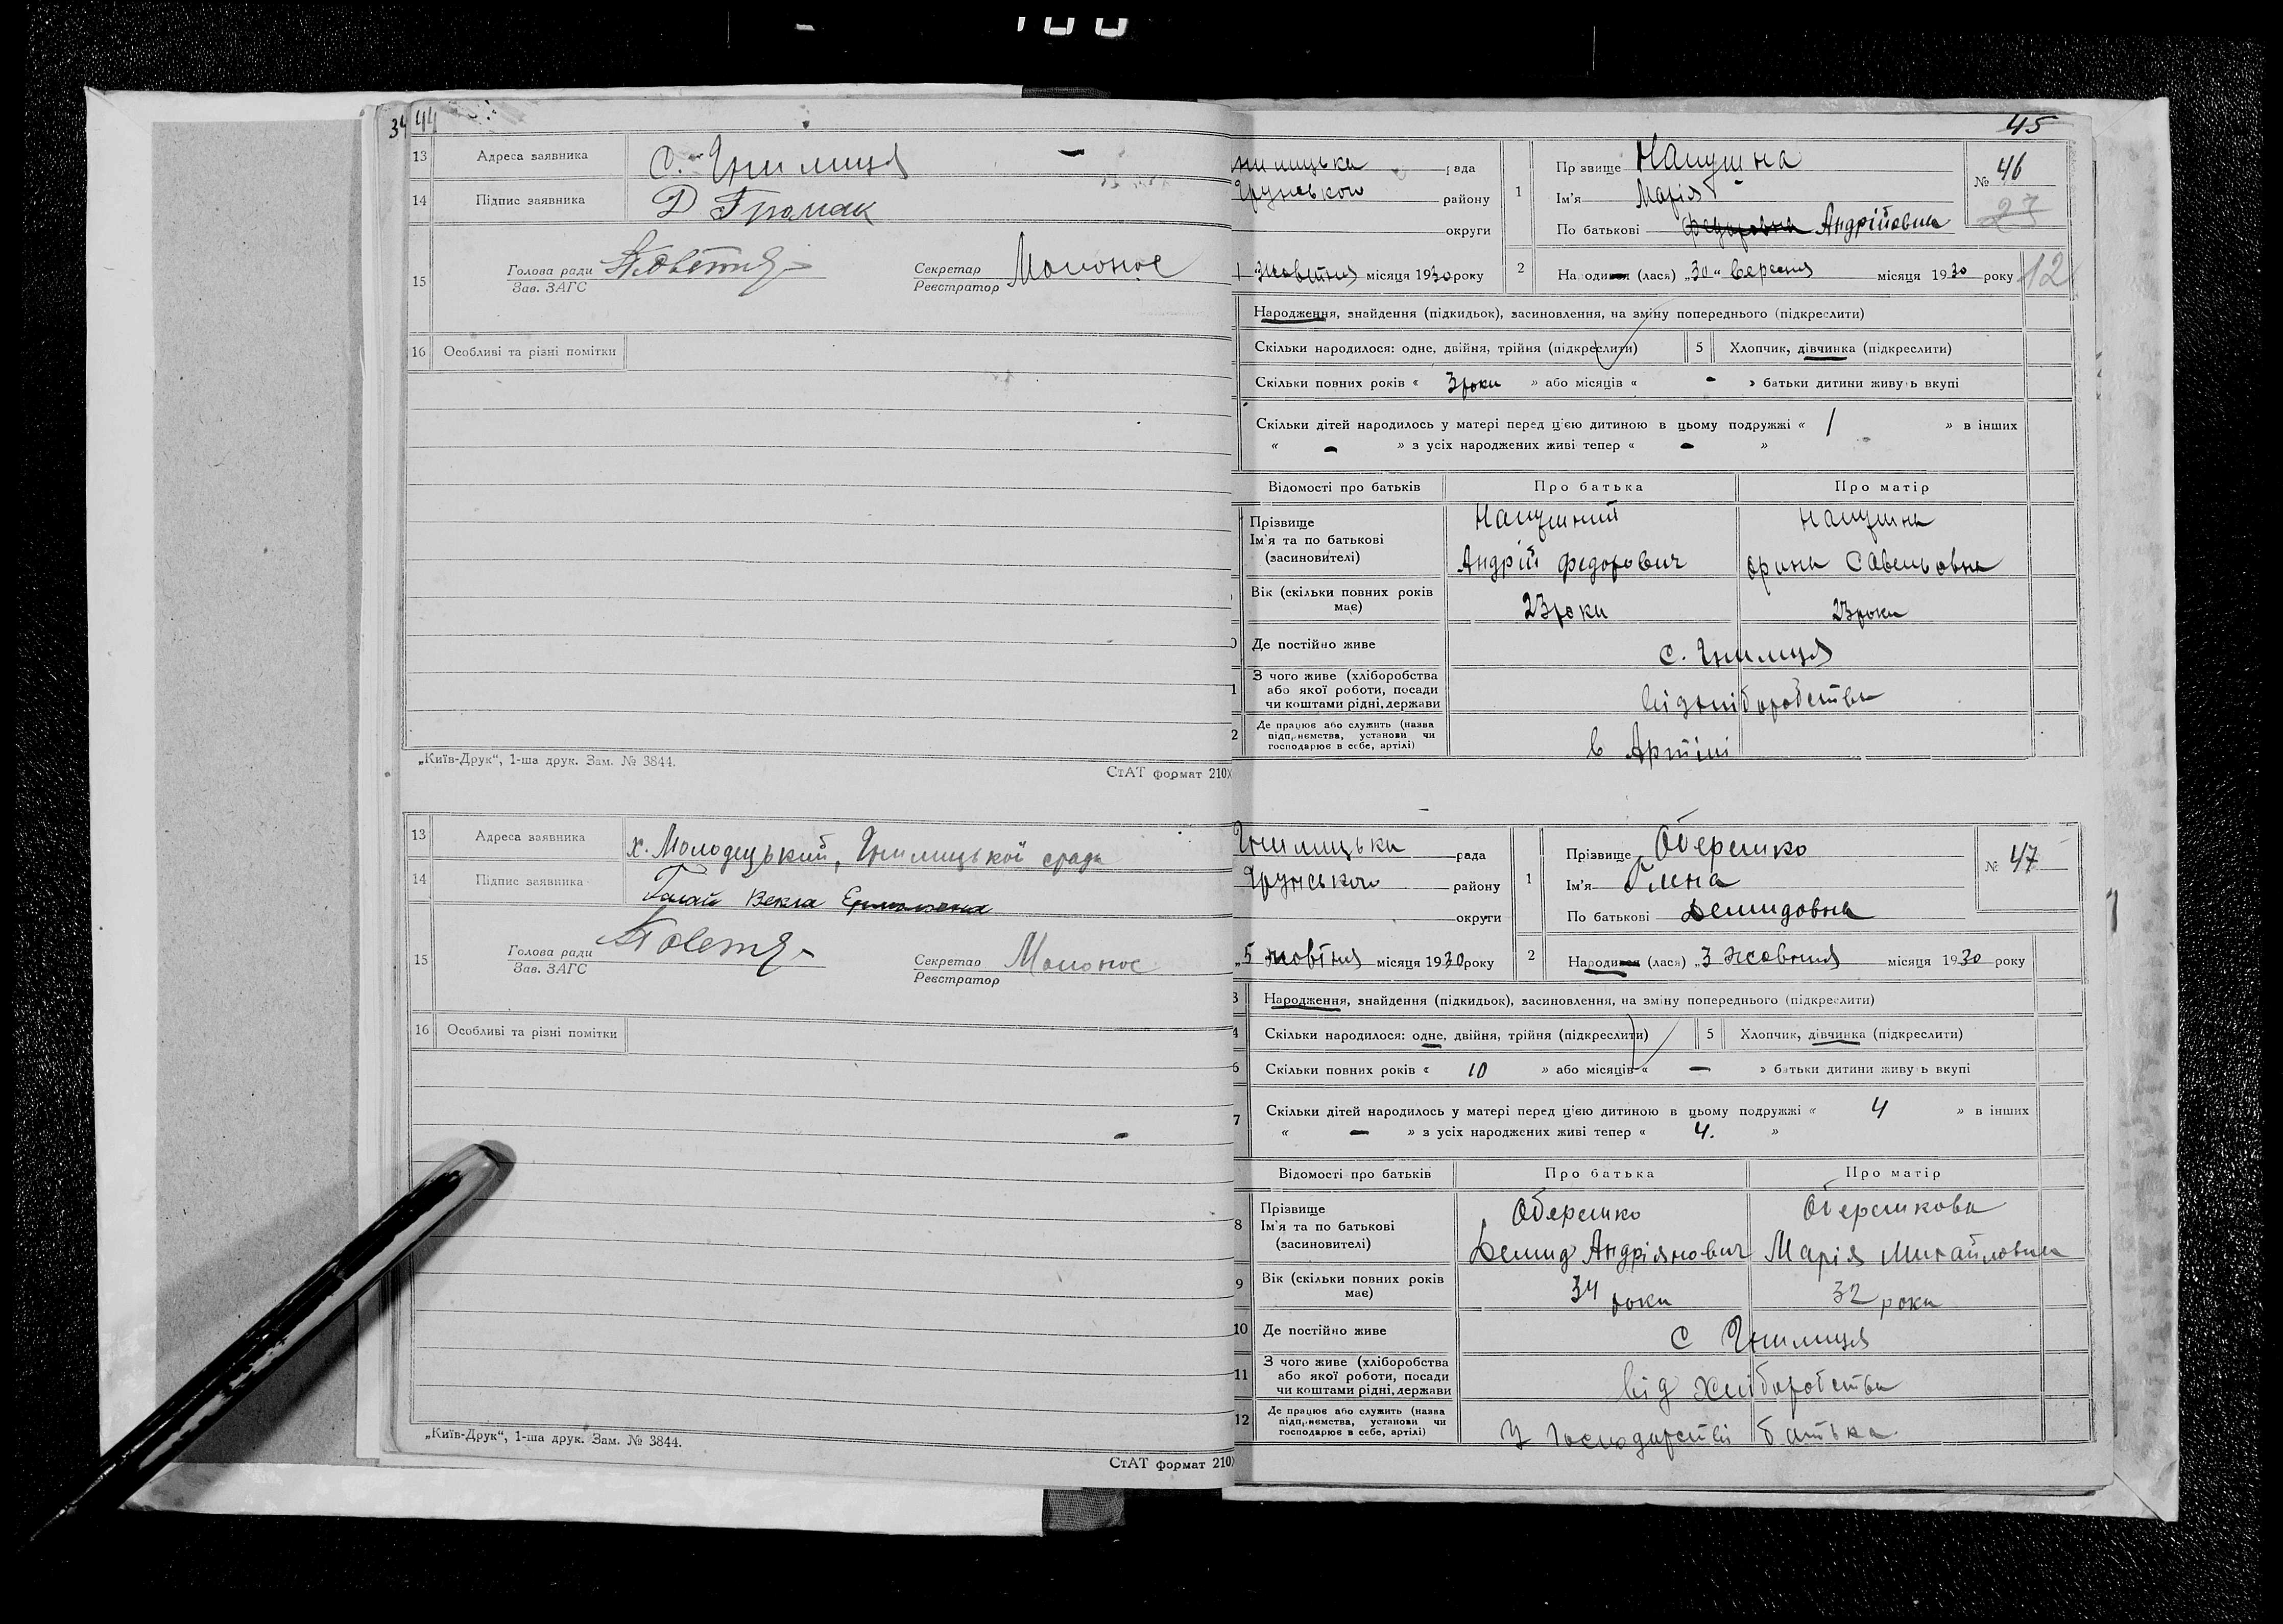 34 44
13 Адреса заявника С. Гнилиця
14 Підпис заявника Д Громак
15 Голова ради
Зав. ЗАГС
Секретар
Реєстратор
16 Особливі та різні помітки
„Київ-Друк“, 1-ша друк. Зам. № 3844.
СтАТ формат 210
13 Адреса заявника х. Молодецький, Гнилицької сради
14 Підпис заявника Галай Векла
15 Голова ради
Зав. ЗАГС
Секретар
Реєстратор
16 Особливі та різні помітки
„Київ-Друк“, 1-ша друк. Зам. № 3844.
СтАТ формат 210
45
нилицька рада
Грунського району
округи
жовтня місяця 1930 року
1 Прізвище
Ім'я Марія
По батькові Федоровна Андрійовна
№ 46
27
2 Народився (лася) „30“ вересня місяця 1930 року
12
Народження, знайдення (підкидьок), засиновлення, на зміну попереднього (підкреслити)
Скільки народилося: одне, двійня, трійня (підкреслити) 5 Хлопчик, дівчинка (підкреслити)
Скільки повних років « 3 роки » або місяців « - » батьки дитини живуть вкупі
Скільки дітей народилось у матері перед цією дитиною в цьому подружжі « 1 » в інших
« - » з усіх народжених живі тепер « - »
Відомості про батьків Про батька Про матір
Прізвище
Ім'я та по батькові
(засиновителі)
Андрій Федорович Орина Савельовна
Вік (скільки повних років має) 23 роки 23 роки
Де постійно живе с. Гнилиця
З чого живе (хліборобства
або якої роботи, посади
чи коштами рідні, держави
від хліборобства
Де працює або служить (назва
підприємства, установи чи
господарює в себе, артілі)
в Артілі
Гнилицька рада
Грунського району
округи
„5 жовтня місяця 1930 року
1 Прізвище Оберемко
Ім'я
По батькові Демидовна
№ 47
2 Народився (лася) „3 жовтня місяця 1930 року
3 Народження, знайдення (підкидьок), засиновлення, на зміну попереднього (підкреслити)
4 Скільки народилося: одне, двійня, трійня (підкреслити) 5 Хлопчик, дівчинка (підкреслити)
6 Скільки повних років « 10 » або місяців « - » батьки дитини живуть вкупі
7 Скільки дітей народилось у матері перед цією дитиною в цьому подружжі « 4 » в інших
« - » з усіх народжених живі тепер « 4. »
Відомості про батьків Про батька Про матір
8 Прізвище Оберемко Оберемкова
Ім'я та по батькові
(засиновителі)
Демид Андріянович Марія Михайловна
9 Вік (скільки повних років має) 34 роки 32 роки
10 Де постійно живе с Гнилиця
11 З чого живе (хліборобства
або якої роботи, посади
чи коштами рідні, держави
від хліборобства
12 Де працює або служить (назва
підприємства, установи чи
господарює в себе, артілі)
У господарстві батька